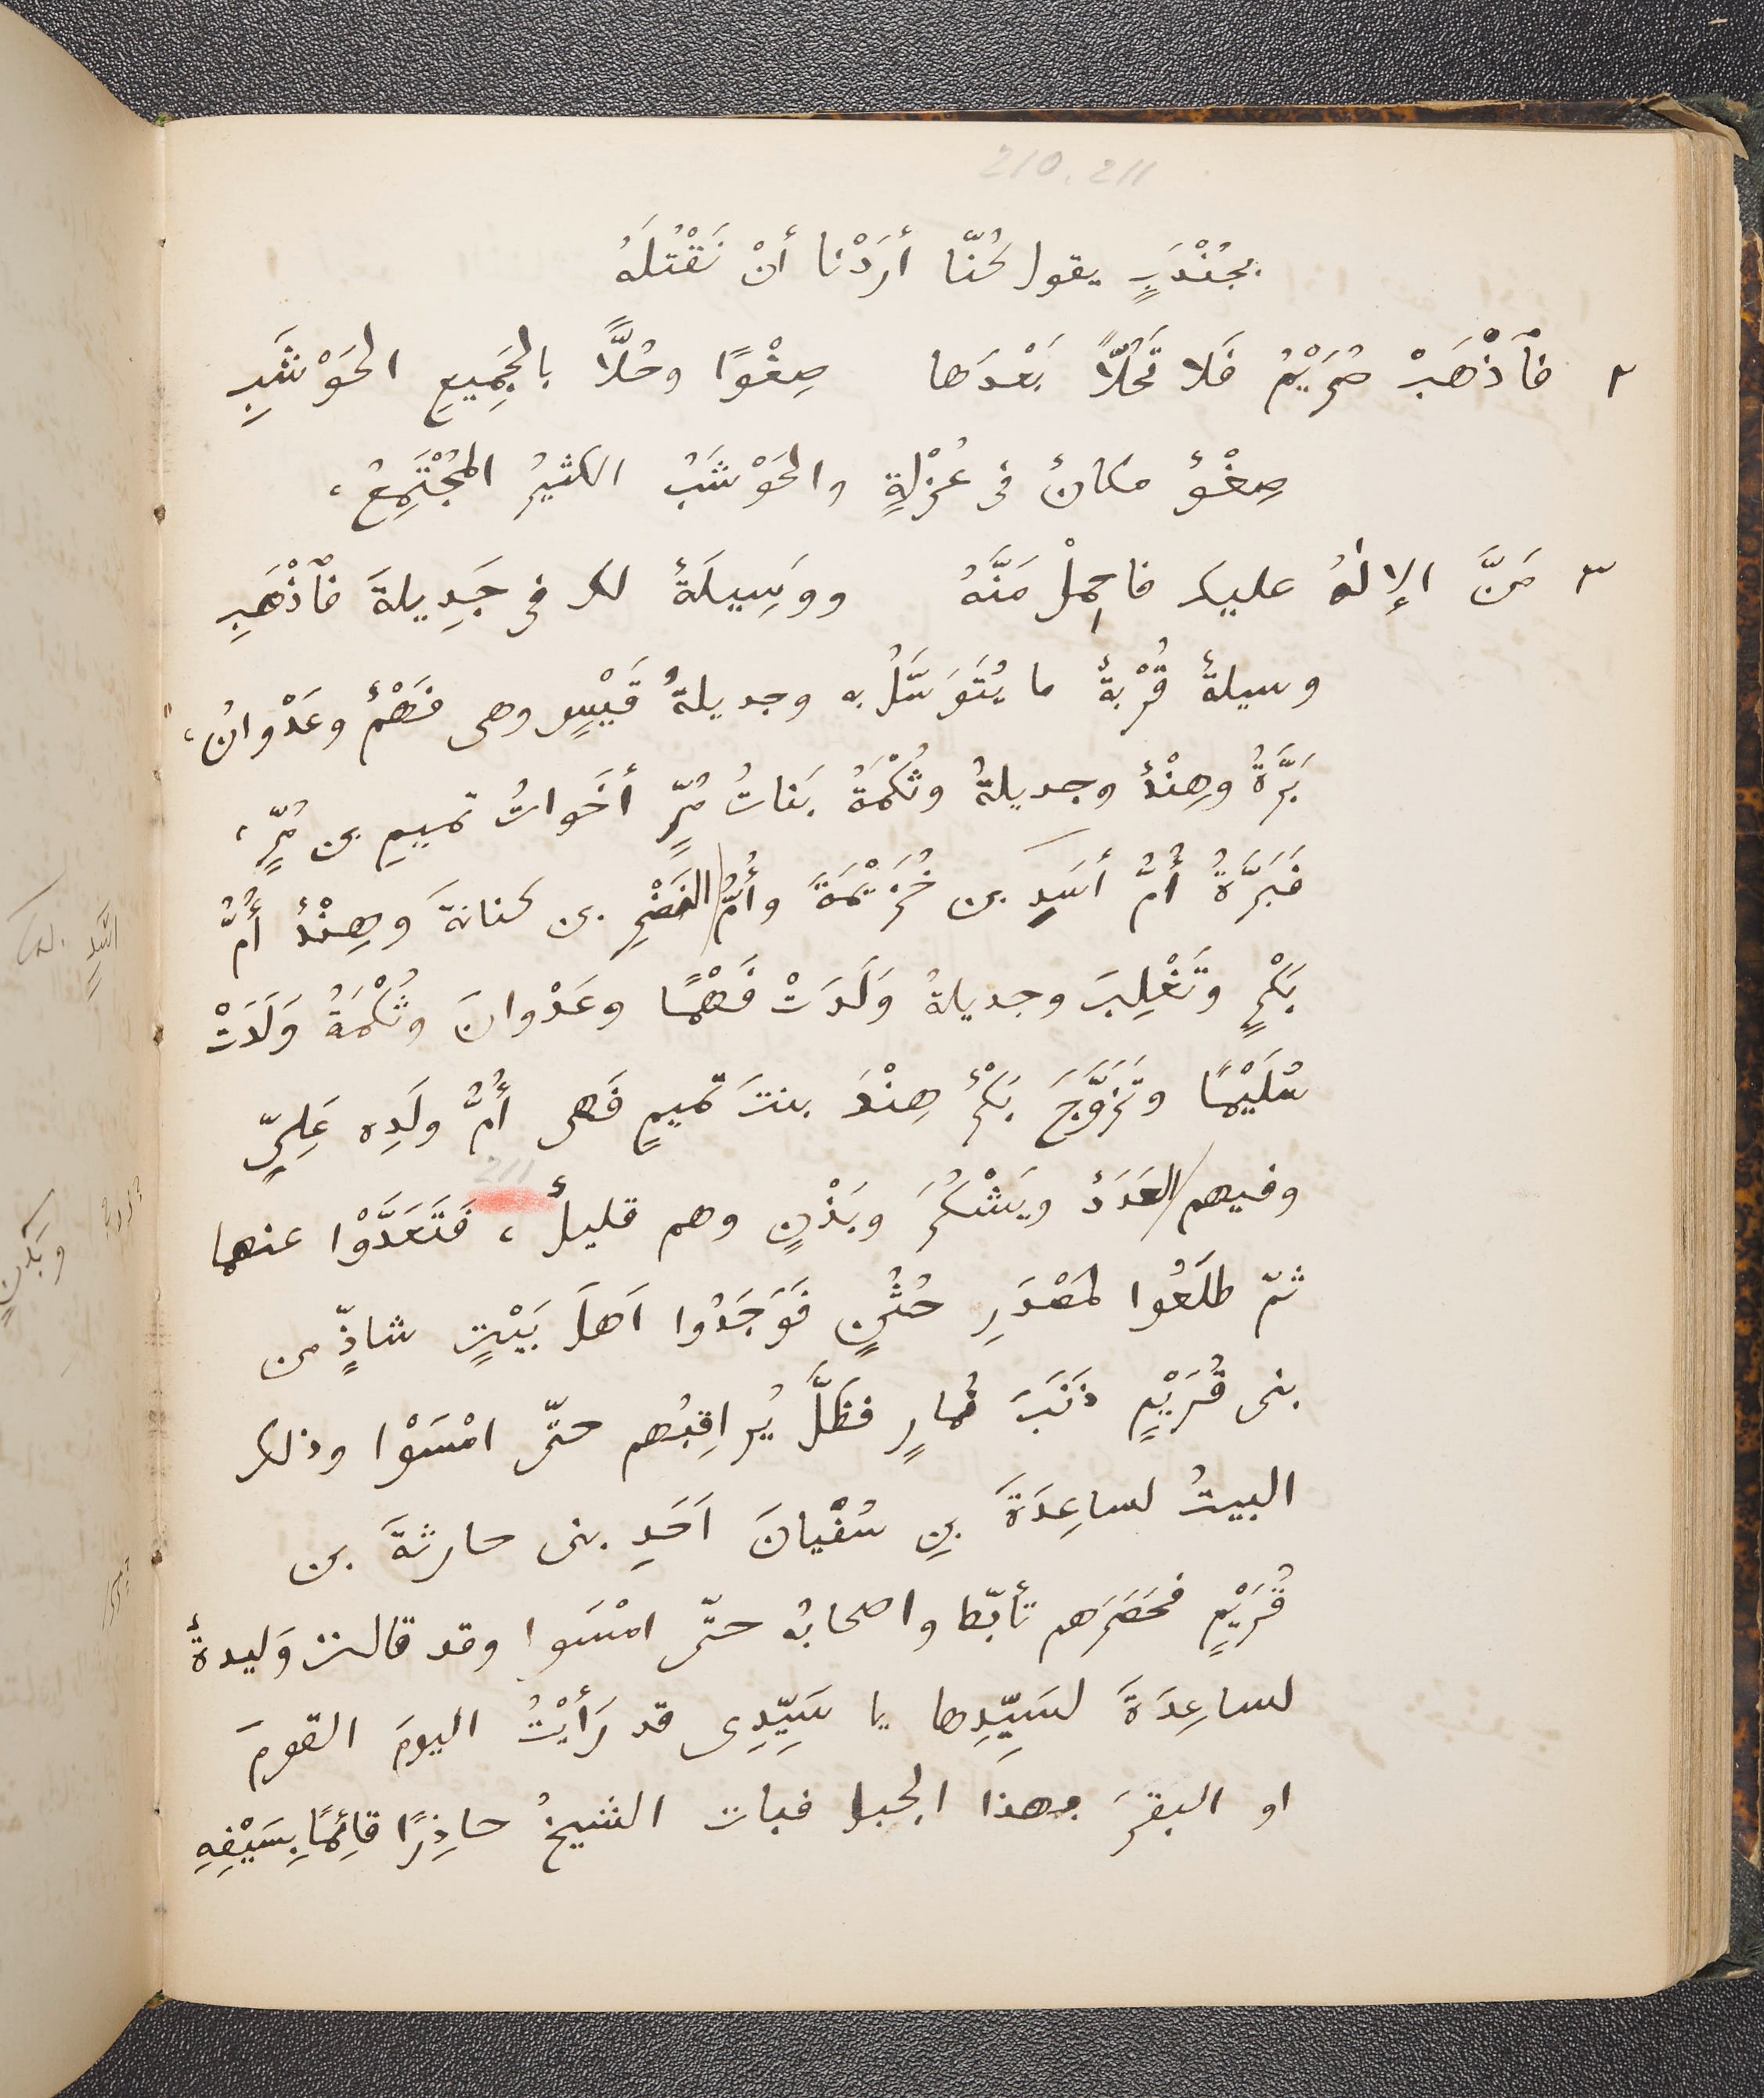 210. 211
بجُنْدَبٍ يقول كُنّا أرَدْنا أنْ نَقْتُلَهُ
٢ فٱذْهَبْ صُرَيْمُ فَلا تَحُلّاً بَعْدَها صِغْوًا وحُلًّا بالجَمِيعِ الحَوْشَبِ
صِغْوٌ مكانٌ فى عُزْلةٍ والحَوْشَبُ الكثيرُ المُجْتَمِعُ،
٣ مَنَّ الإلٰهُ عليك فاحمِلْ مَنَّهُ ووَسِيلَةٌ لك فى جَدِيلةَ فٱذْهَبِ
وسيلةٌ قُرْبةٌ ما يُتَوَسَّلُ به وجديلةُ قَيْسٍ وهى فَهْمٌ وعَدْوانُ،
بَرَّةُ وهِنْدٌ وجديلةُ وثُكْمَةُ بَناتُ مُرٍّ أخَواتُ تميمِ بن مُرٍّ،
فَبَرَّةُ أُمُّ أسَدِ بن خُزَيْمَةَ وأُمُّ النَضْرِ بن كنانةَ وهِنْدٌ أُمُّ
بَكْرٍ وتَغْلِبَ وجديلةُ وَلَدَتْ فَهْمًا وعَدْوانَ وثُكْمَةُ وَلَدَتْ
سُلَيْمًا وتَزَوَّجَ بَكْرٌ هِنْدَ بنتَ تميمٍ فَهى أُمُّ ولَدِه عَلِىٍّ
211
وفيهم العَدَدُ ويَشْكُرَ وبَدْنٍ وهم قليلٌ، فَتَعَدَّوْا عنهما
ثمّ طلَعُوا لمَصْدَرِ حُثُنٍ فَوَجَدُوا اَهلَ بَيْتٍ شاذٍّ من
بنى قُرَيْمٍ ذَنَبَ نُمارٍ فظَلَّ يُراقِبُهم حتّى امْسَوْا وذلك
البيتُ لساعِدَةَ بنِ سُفْيانَ اَحَدِ بنى حارثةَ بن
قُرَيْمٍ فحَصَرَهم تأبّط واصحابُه حتّى امْسَوا وقد قالت وَليدةٌ
لساعِدَةَ لسَيِّدِها يا سَيِّدِى قد رَأَيْتُ اليومَ القومَ
او البقرَ بهذا الجبل فبات الشيخُ حاذِرًا قائِمًا بِسَيْفِهِ